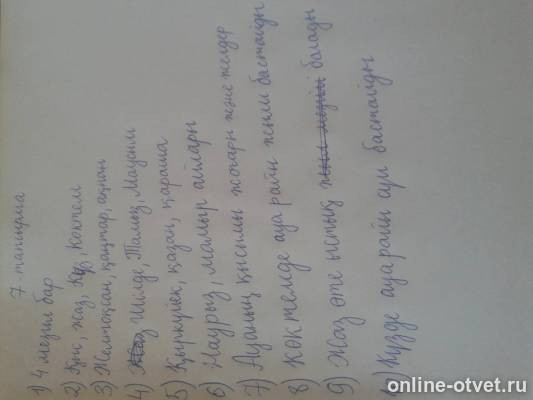 7-тапсырма
1) 4 мезгил бар
2) Қыс, жаз, Күз, Көктем
3) Желтоқсан, қаңтар, ақпан
4) Шілде, Тамыз, Маусым
5) Қыркүйек, қазан, қараша
6) Наурыз, мамыр айлары
7) Ауаның қысымы жоғары және желдер
8) көктемде ауа райы жылы бастайды
9) Жаз өте ыстық болады
10) Күзде ауа райы суи бастайды
online-otvet.ru